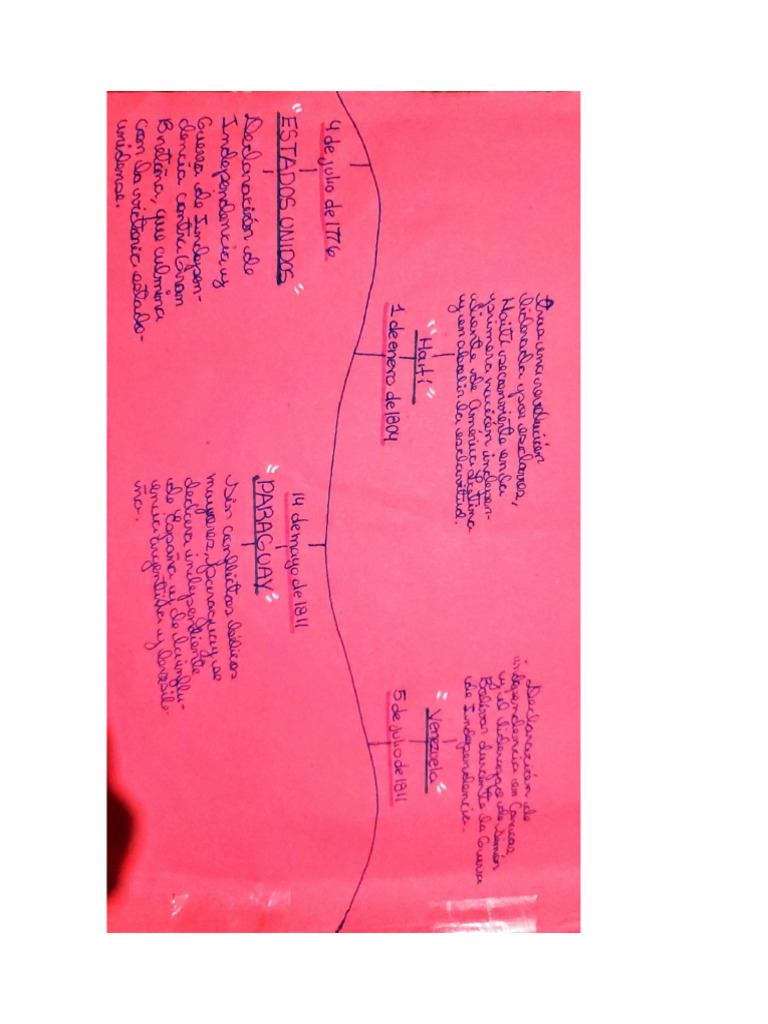 4 de julio de 1776
"ESTADOS UNIDOS"
Declaración de
Independencia y
Guerra de Indepen-
dencia contra Gran
Bretaña, que culmina
con la victoria estado-
unidense.
tras una revolución
liderada por esclavos,
Haití se convierte en la
primera nación indepen-
diente de América Latina
y en abolir la esclavitud.
"Haití"
1 de enero de 1804
14 de mayo de 1811
"PARAGUAY"
Sin conflictos bélicos
mayores, Paraguay se
declara independiente
de España y de la influ-
encia argentina y brasile-
ña.
Declaración de
independencia en Caracas
y el liderazgo de Simón
Bolívar durante la Guerra
de Independencia.
"Venezuela"
5 de julio de 1811